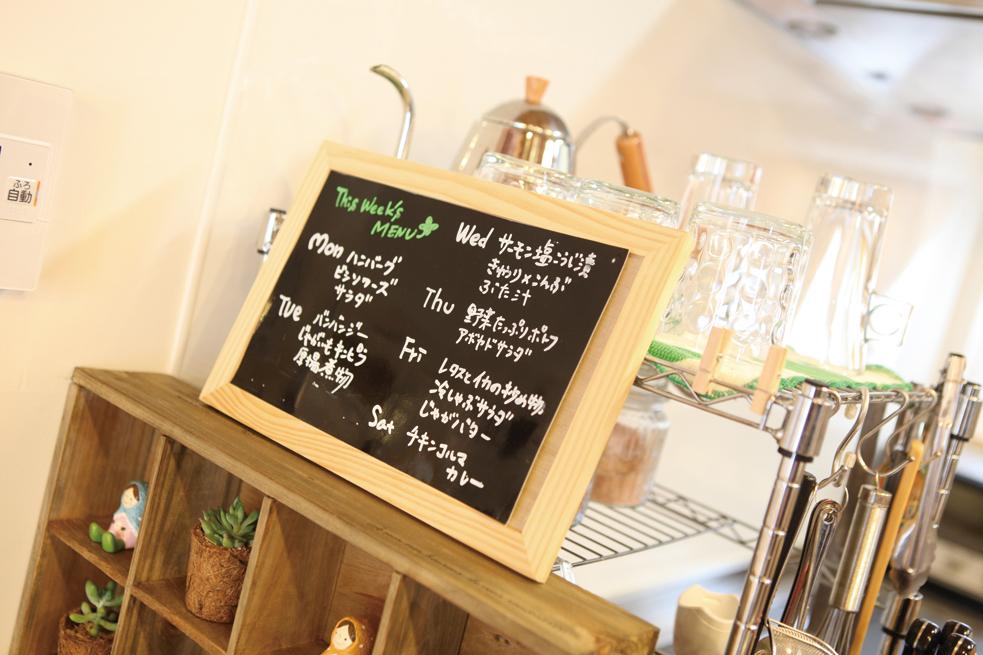 ふろ
自動
This Week's
MENU
Mon ハンバーグ
ビシソワーズ
サラダ
Tue バンバンジー
じゃがいもキンピラ
厚揚煮物
Wed サーモン塩こうじ漬
きゅうり×こんぶ
ぶた汁
Thu 野菜たっぷりポトフ
アボカドサラダ
Fri レタスとイカの炒め物
冷しゃぶサラダ
じゃがバター
Sat チキンコルマ
カレー